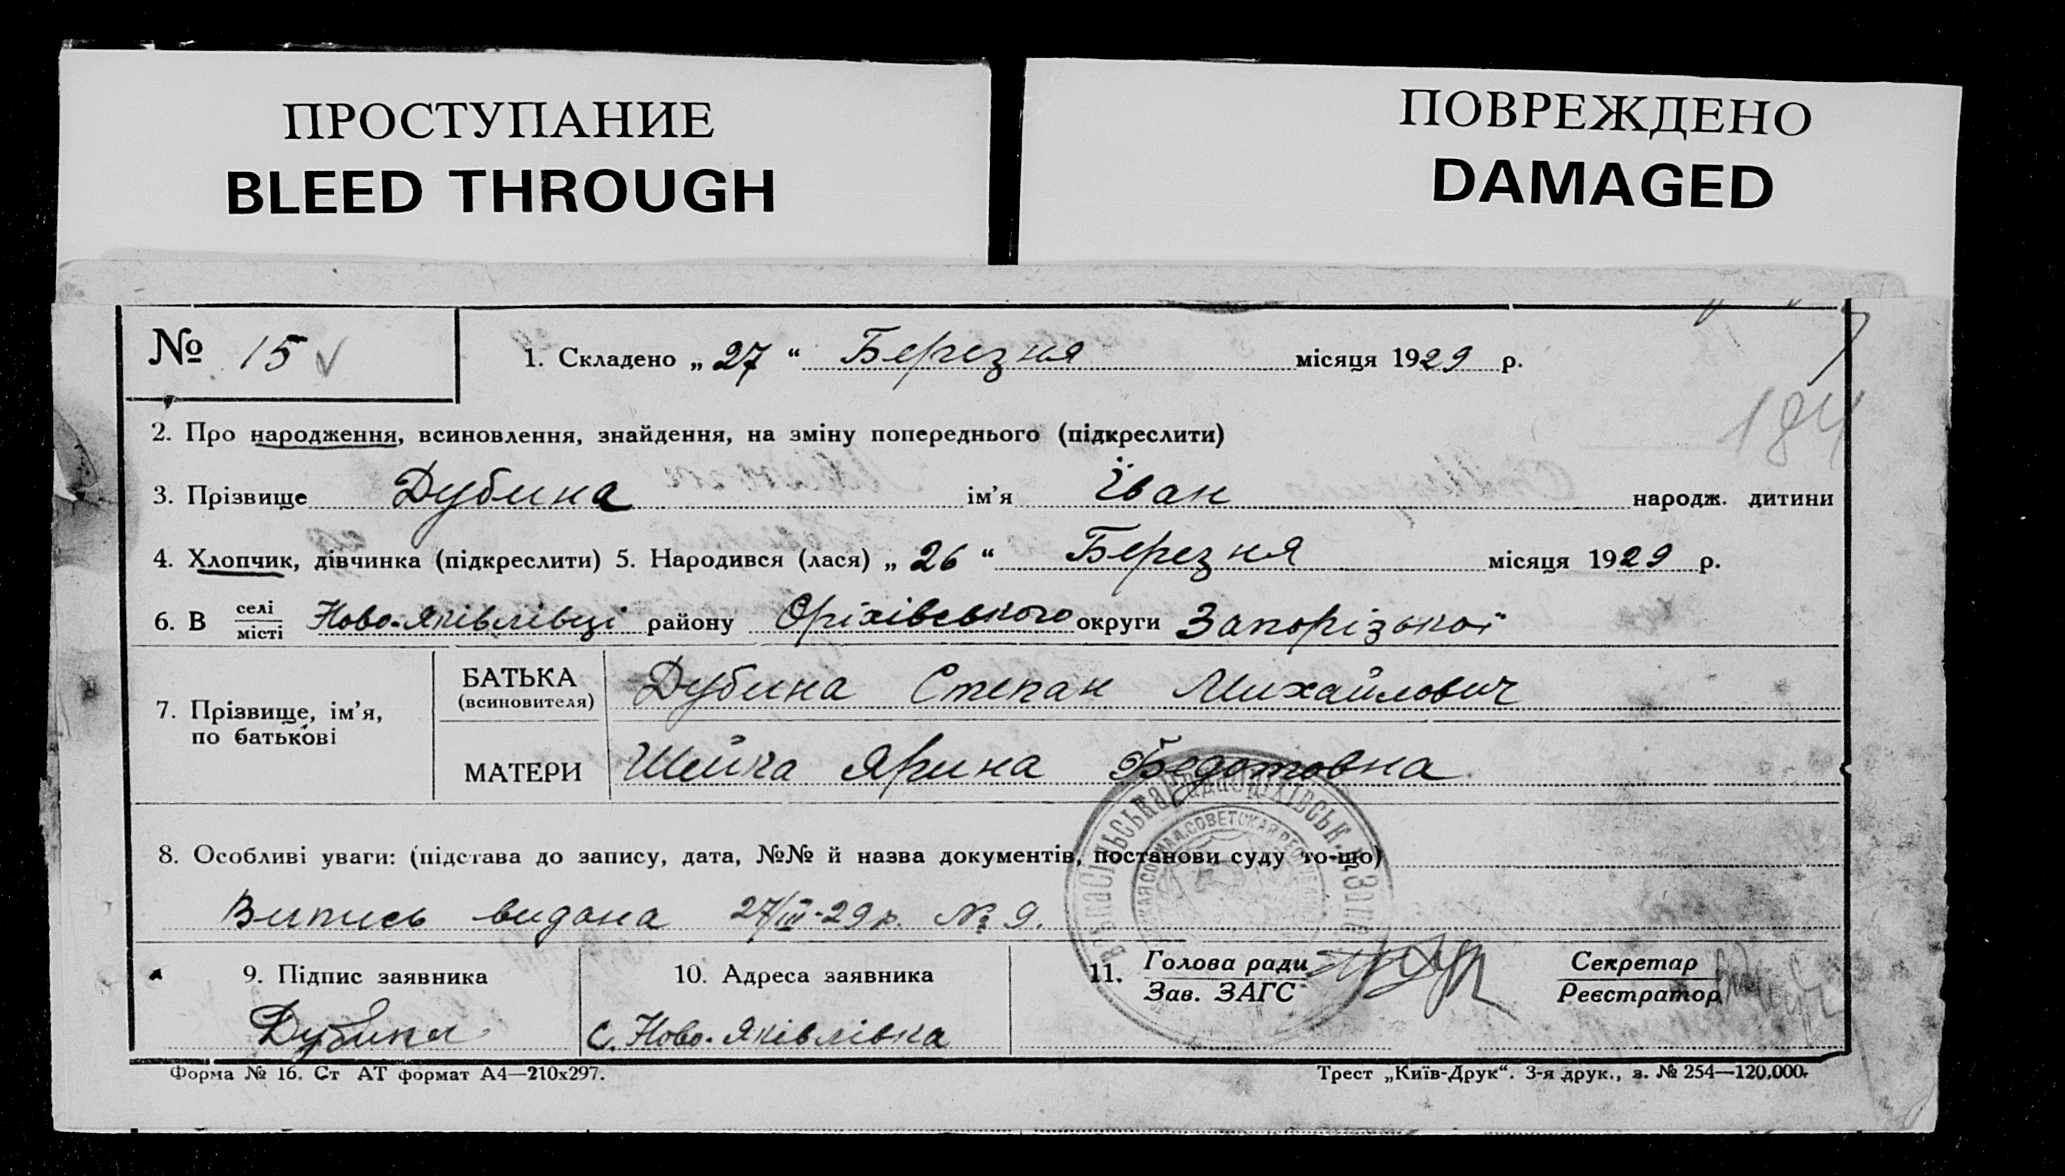 ПРОСТУПАНИЕ
BLEED THROUGH
ПОВРЕЖДЕНО
DAMAGED
№ 15 1. Складено „ 27 “ Березня місяця 1929 р.
184
2. Про народження, всиновлення, знайдення, на зміну попереднього (підкреслити)
3. Прізвище Дубина ім'я Іван народж. дитини
4. Хлопчик, дівчинка (підкреслити) 5. Народився (лася) „ 26 “ Березня місяця 1929 р.
6. В селі/місті Ново-Яківлівці району Оріхівського округи Запорізької
7. Прізвище, ім'я, по батькові
БАТЬКА (всиновителя) Дубина Степан Михайлович
МАТЕРИ Шейка Ярина Бедотовна
8. Особливі уваги: (підстава до запису, дата, №№ й назва документів, постанови суду то-що)
Випись видана 27/III-29 р. № 9.
9. Підпис заявника 10. Адреса заявника 11. Голова ради Секретар
Зав. ЗАГС Реєстратор
Дубина с. Ново-Яківлівка
Форма № 16. Ст АТ формат А4—210х297. Трест „Київ-Друк“. 3-я друк., з. № 254—120,000.